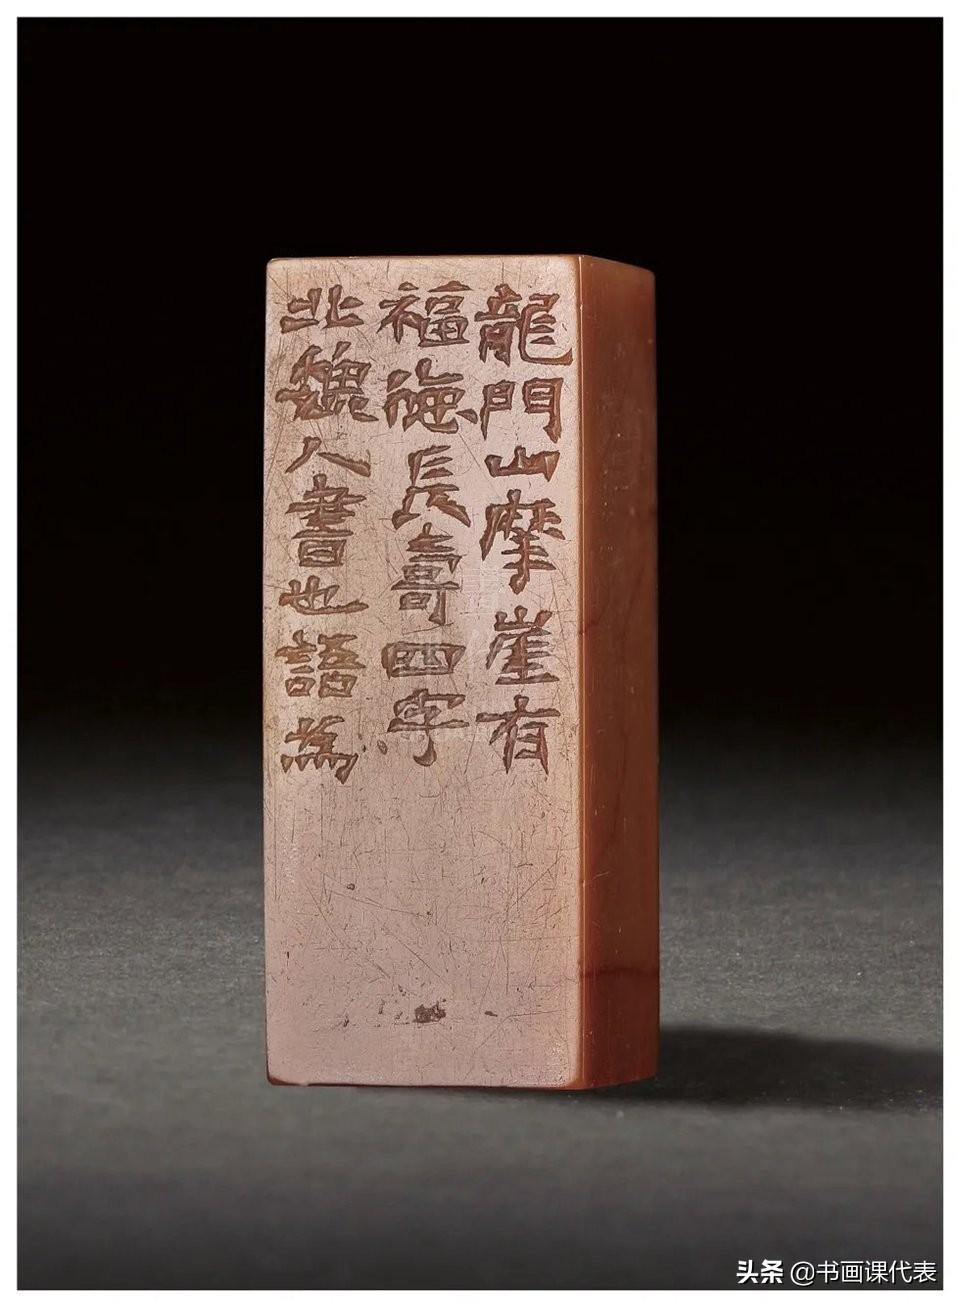 龍門山摩崖有
福德長壽四字
北魏人書也語為
头条 @书画课代表